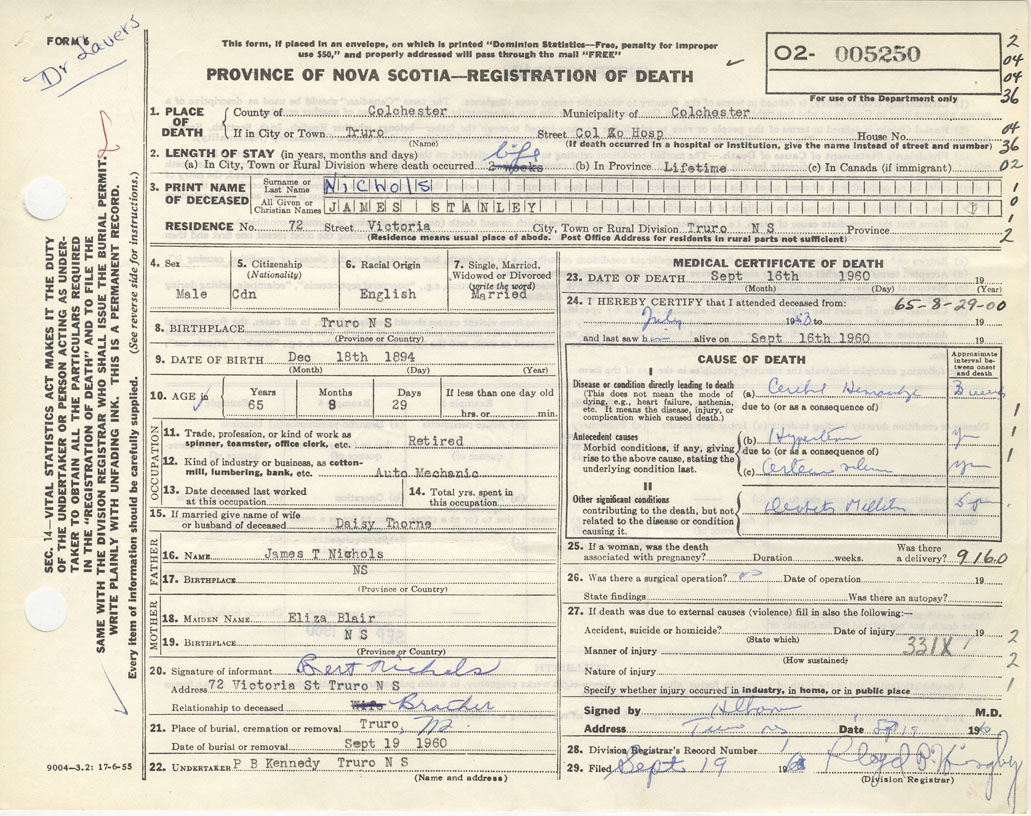 FORM 6
Dr Lavers
This form, if placed in an envelope, on which is printed "Dominion Statistics—Free, penalty for improper
use $50," and properly addressed will pass through the mail "FREE"
PROVINCE OF NOVA SCOTIA—REGISTRATION OF DEATH
02- 005250
For use of the Department only
2
04
04
36
04
36
02
1
0
1
2
SEC. 14—VITAL STATISTICS ACT MAKES IT THE DUTY
OF THE UNDERTAKER OR PERSON ACTING AS UNDER-
TAKER TO OBTAIN ALL THE PARTICULARS REQUIRED
IN THE "REGISTRATION OF DEATH" AND TO FILE THE
SAME WITH THE DIVISION REGISTRAR WHO SHALL ISSUE THE BURIAL PERMIT.
WRITE PLAINLY WITH UNFADING INK. THIS IS A PERMANENT RECORD.
Every item of information should be carefully supplied. (See reverse side for instructions.)
1. PLACE OF DEATH
County of Colchester Municipality of Colchester
If in City or Town Truro Street Col Ko Hosp House No.
(Name) (If death occurred in a hospital or institution, give the name instead of street and number)
2. LENGTH OF STAY (in years, months and days)
(a) In City, Town or Rural Division where death occurred 2 weeks life (b) In Province Lifetime (c) In Canada (if immigrant)
3. PRINT NAME OF DECEASED
Surname or Last Name Nichols
All Given or Christian Names JAMES STANLEY
RESIDENCE No. 72 Street Victoria City, Town or Rural Division Truro N S Province
(Residence means usual place of abode. Post Office Address for residents in rural parts not sufficient)
4. Sex
Male
5. Citizenship
(Nationality)
Cdn
6. Racial Origin
English
7. Single, Married,
Widowed or Divorced
(write the word)
Married
8. BIRTHPLACE Truro N S
(Province or Country)
9. DATE OF BIRTH Dec 18th 1894
(Month) (Day) (Year)
10. AGE
Years Months Days If less than one day old
65 8 29 hrs. or min.
OCCUPATION
11. Trade, profession, or kind of work as
spinner, teamster, office clerk, etc. Retired
12. Kind of industry or business, as cotton-
mill, lumbering, bank, etc. Auto Mechanic
13. Date deceased last worked
at this occupation
14. Total yrs. spent in
this occupation
15. If married give name of wife
or husband of deceased Daisy Thorne
FATHER
16. NAME James T Nichols
17. BIRTHPLACE NS
(Province or Country)
MOTHER
18. MAIDEN NAME Eliza Blair
19. BIRTHPLACE N S
(Province or Country)
20. Signature of informant Bert Nichols
Address 72 Victoria St Truro N S
Relationship to deceased Wife Brother
21. Place of burial, cremation or removal Truro,
Date of burial or removal Sept 19 1960
22. UNDERTAKER P B Kennedy Truro N S
(Name and address)
9004—3.2: 17-6-55
MEDICAL CERTIFICATE OF DEATH
23. DATE OF DEATH Sept 16th 1960 19
(Month) (Day) (Year)
24. I HEREBY CERTIFY that I attended deceased from: 65-8-29-00
July 1953 to 19
and last saw h alive on Sept 16th 1960 19
CAUSE OF DEATH
Approximate
interval be-
tween onset
and death
I
Disease or condition directly leading to death
(This does not mean the mode of
dying, e.g., heart failure, asthenia,
etc. It means the disease, injury, or
complication which caused death.)
(a)
due to (or as a consequence of)
Antecedent causes
Morbid conditions, if any, giving
rise to the above cause, stating the
underlying condition last.
(b)
due to (or as a consequence of)
(c)
II
Other significant conditions
contributing to the death, but not
related to the disease or condition
causing it.
1
1
1
25. If a woman, was the death
associated with pregnancy? Duration weeks. Was there
a delivery? 9160
26. Was there a surgical operation? no Date of operation 19
State findings Was there an autopsy?
27. If death was due to external causes (violence) fill in also the following:—
Accident, suicide or homicide? Date of injury 19
(State which)
Manner of injury 331X
(How sustained)
Nature of injury
Specify whether injury occurred in industry, in home, or in public place
2
2
1
Signed by M.D.
Address Truro NS Date Sept 19 196
28. Division Registrar's Record Number
29. Filed Sept 19 19
(Division Registrar)